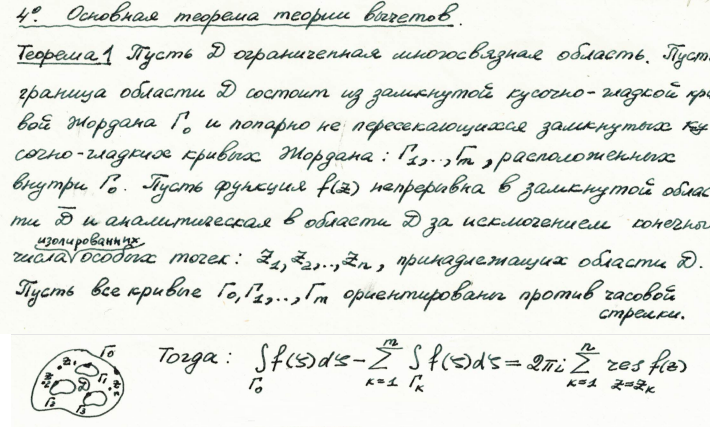 4° Основная теорема теории вычетов.
Теорема 1 Пусть D ограниченная многосвязная область. Пуст
граница области D состоит из замкнутой кусочно-гладкой кри
вой Жордана Γ₀ и попарно не пересекающихся замкнутых ку
сочно-гладких кривых Жордана: Γ₁,..,Γₘ, расположенных
внутри Γ₀. Пусть функция f(z) непрерывна в замкнутой облас
ти D̅ и аналитическая в области D за исключением конечны
изолированных
числа особых точек: z₁, z₂,..,zₙ, принадлежащих области D.
Пусть все кривые Γ₀,Γ₁,..,Γₘ ориентированы против часовой
стрелки.
Тогда: ∫_{Γ₀} f(ζ)dζ − ∑_{κ=1}^{m} ∫_{Γ_κ} f(ζ)dζ = 2πi ∑_{κ=1}^{n} res_{z=z_κ} f(z)
Γ₀ z₁ Γ₁ z₂ D Γ₂ Γ₃